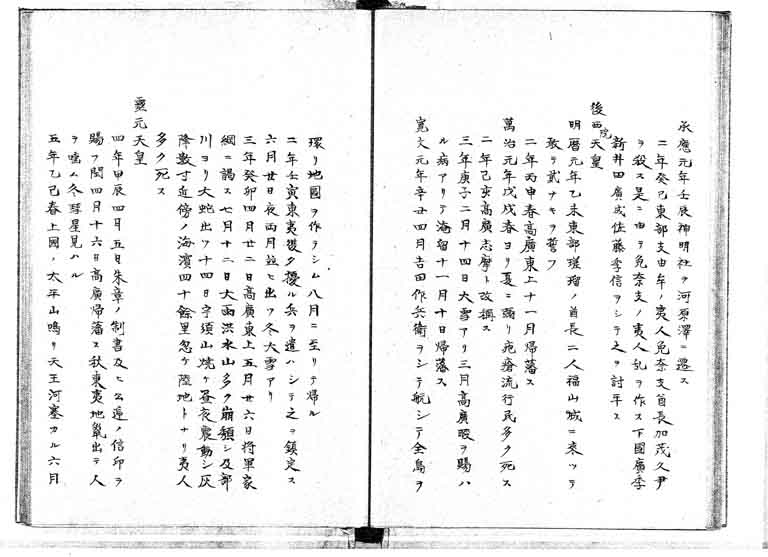 承應元年壬辰神明社ヲ河原澤ニ遷ス
二年癸巳東部支由牟ノ夷人免奈支首長加茂久尹
ヲ殺ス是ニ由テ免奈支ノ夷人乱ヲ作ス下國廣季
新井田廣成佐藤季信ヲシテ之ヲ討平ス
後西院天皇
明暦元年乙未東部瑳瑠ノ首長二人福山城ニ来ツテ
敢テ貳ナキヲ誓フ
二年丙申春高廣東上十一月帰藩ス
萬治元年戊戌春ヨリ夏ニ至リ疱瘡流行民多ク死ス
二年己亥高廣志摩ト改稱ス
三年庚子二月十四日大雪アリ三月高廣暇ヲ賜ハ
ル病アリテ滞留十一月十日帰藩ス
寛文元年辛丑四月吉田作兵衛ヲシテ航シテ全島ヲ
環リ地圖ヲ作ラシム八月ニ至リテ帰ル
二年壬寅東夷復タ擾ル兵ヲ遣ハシテ之ヲ鎮定ス
六月廿日夜両月並ヒ出ツ冬大雪アリ
三年癸卯四月廿二日高廣東上五月廿六日将軍家
綱ニ謁ス七月十二日大雨洪水山多ク崩頽シ及部
川ヨリ大蛇出ツ十四日宇須山焼ケ昼夜震動シ灰
降數寸近傍ノ海濱四十餘里忽ケ陸地トナリ夷人
多ク死ス
靈元天皇
四年甲辰四月五日朱章ノ制書及ヒ公逓ノ信印ヲ
賜フ閏四月十六日高廣帰藩ス秋東夷地氣出テ人
ヲ噛ム冬彗星見ハル
五年乙巳春上國ノ太平山鳴リ天王河塞カル六月